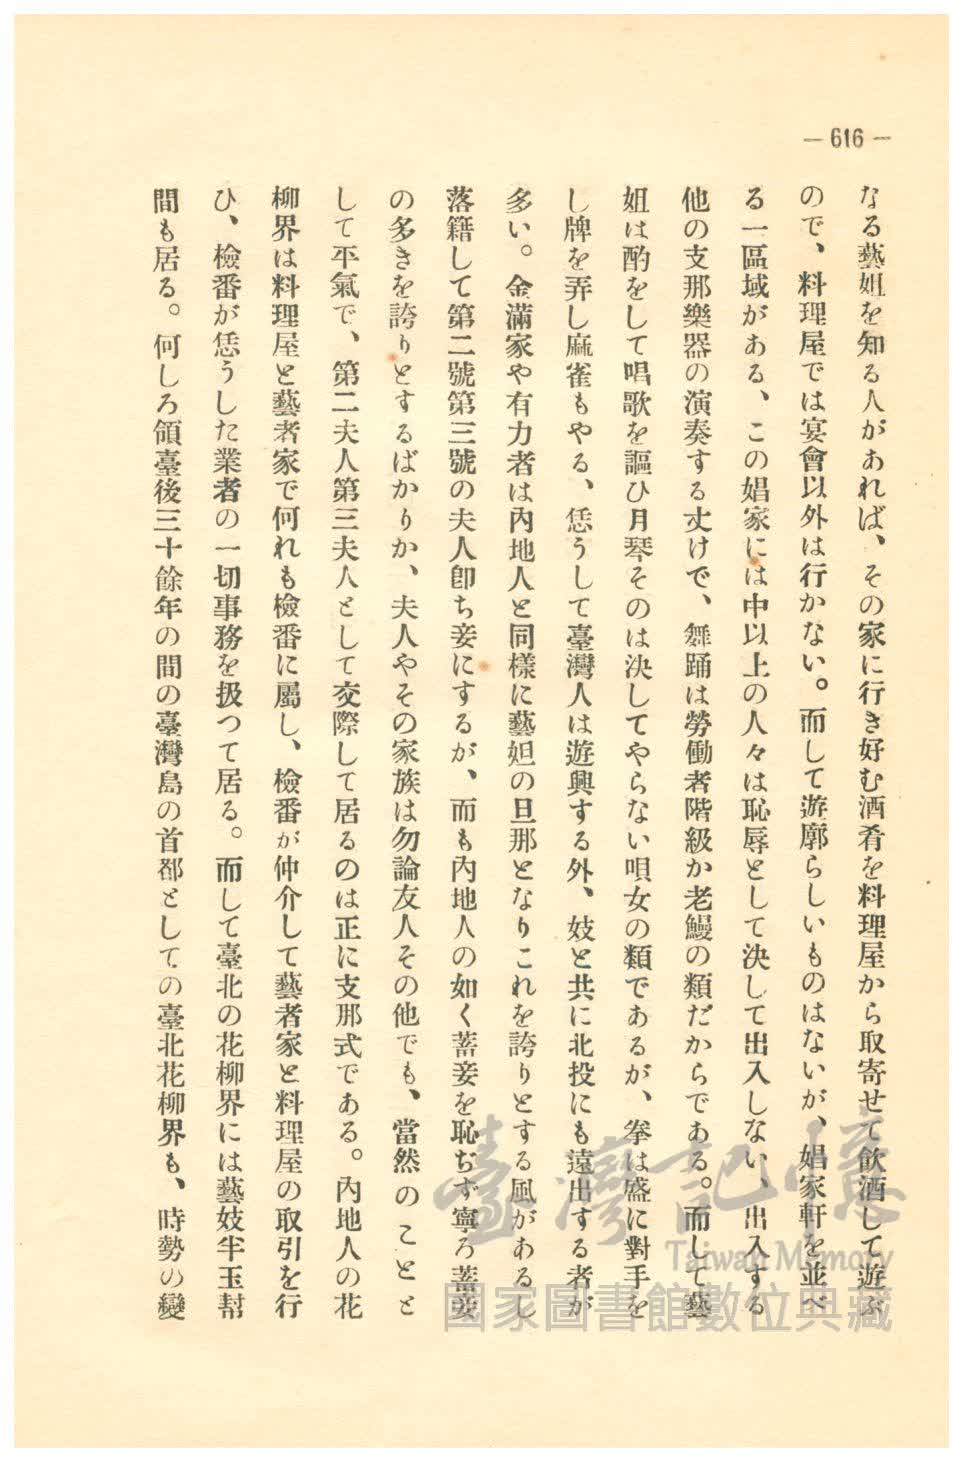 — 616 —
なる藝妲を知る人があれば、その家に行き好む酒肴を料理屋から取寄せて飮酒して遊ぶ
ので、料理屋では宴會以外は行かない。而して遊廓らしいものはないが、娼家軒を並べ
る一區域がある、この娼家には中以上の人々は恥辱として決して出入しない、出入する
他の支那樂器の演奏する丈けで、舞踊は勞働者階級か老鰻の類だからである。而して藝
妲は酌をして唱歌を謳ひ月琴そのは決してやらない唄女の類であるが、拳は盛に對手を
し牌を弄し麻雀もやる、恁うして臺灣人は遊興する外、妓と共に北投にも遠出する者が
多い。金滿家や有力者は內地人と同樣に藝妲の旦那となりこれを誇りとする風があるし
落籍して第二號第三號の夫人卽ち妾にするが、而も內地人の如く蓄妾を恥ぢず寧ろ蓄妾
の多きを誇りとするばかりか、夫人やその家族は勿論友人その他でも、當然のことと
して平氣で、第二夫人第三夫人として交際して居るのは正に支那式である。內地人の花
柳界は料理屋と藝者家で何れも檢番に屬し、檢番が仲介して藝者家と料理屋の取引を行
ひ、檢番が恁うした業者の一切事務を扱つて居る。而して臺北の花柳界には藝妓半玉幇
間も居る。何しろ領臺後三十餘年の間の臺灣島の首都としての臺北花柳界も、時勢の變
臺灣記憶
Taiwan Memory
國家圖書館數位典藏